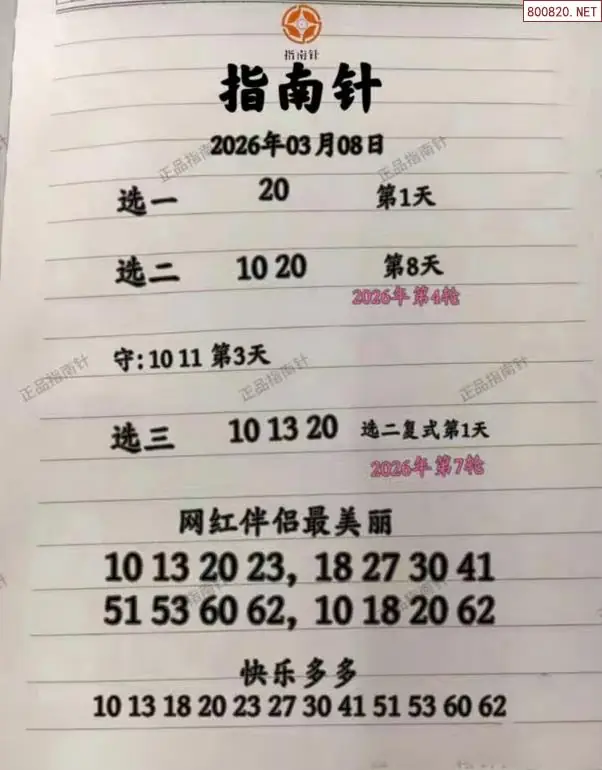 800820.NET
指南针
指南针
2026年03月08日
正品指南针
正品指南针
选一 20 第1天
选二 10 20 第8天
2026年第4轮
守: 10 11 第3天
正品指南针
正品指南针
正品指南针
选三 10 13 20 选二复式第1天
2026年第7轮
网红伴侣最美丽
10 13 20 23, 18 27 30 41
51 53 60 62, 10 18 20 62
正品指南针
正品指南针
快乐多多
10 13 18 20 23 27 30 41 51 53 60 62